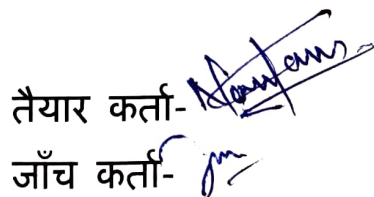 तैयार कर्ता-
जाँच कर्ता-